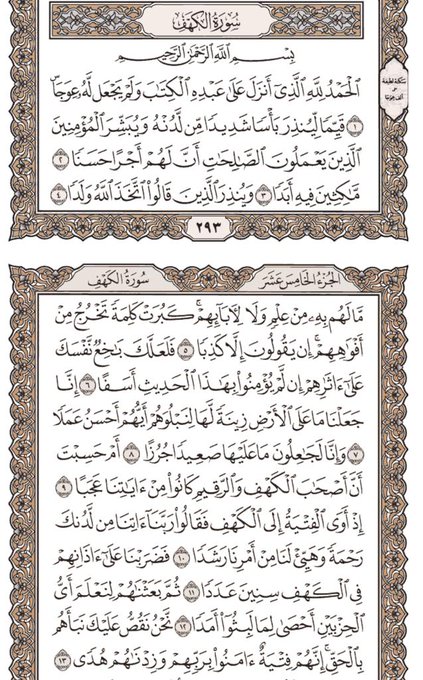 سُورَةُ الكَهْفِ
بِسْمِ اللَّهِ الرَّحْمَٰنِ الرَّحِيمِ
الْحَمْدُ لِلَّهِ الَّذِي أَنزَلَ عَلَىٰ عَبْدِهِ الْكِتَٰبَ وَلَمْ يَجْعَل لَّهُ عِوَجَاۜ
١ قَيِّمًا لِّيُنذِرَ بَأْسًا شَدِيدًا مِّن لَّدُنْهُ وَيُبَشِّرَ الْمُؤْمِنِينَ
الَّذِينَ يَعْمَلُونَ الصَّٰلِحَٰتِ أَنَّ لَهُمْ أَجْرًا حَسَنًا ٢
مَّٰكِثِينَ فِيهِ أَبَدًا ٣ وَيُنذِرَ الَّذِينَ قَالُوا۟ اتَّخَذَ اللَّهُ وَلَدًا ٤
٢٩٣
الجُزْءُ الخَامِسَ عَشَرَ
سُورَةُ الكَهْفِ
مَّا لَهُم بِهِۦ مِنْ عِلْمٍ وَلَا لِأٓبَآئِهِمْۚ كَبُرَتْ كَلِمَةً تَخْرُجُ مِنْ
أَفْوَٰهِهِمْۚ إِن يَقُولُونَ إِلَّا كَذِبًا ٥ فَلَعَلَّكَ بَٰخِعٌ نَّفْسَكَ
عَلَىٰٓ ءَاثَٰرِهِمْ إِن لَّمْ يُؤْمِنُوا۟ بِهَٰذَا الْحَدِيثِ أَسَفًا ٦ إِنَّا
جَعَلْنَا مَا عَلَى الْأَرْضِ زِينَةً لَّهَا لِنَبْلُوَهُمْ أَيُّهُمْ أَحْسَنُ عَمَلًا
٧ وَإِنَّا لَجَٰعِلُونَ مَا عَلَيْهَا صَعِيدًا جُرُزًا ٨ أَمْ حَسِبْتَ
أَنَّ أَصْحَٰبَ الْكَهْفِ وَالرَّقِيمِ كَانُوا۟ مِنْ ءَايَٰتِنَا عَجَبًا ٩
إِذْ أَوَى الْفِتْيَةُ إِلَى الْكَهْفِ فَقَالُوا۟ رَبَّنَآ ءَاتِنَا مِن لَّدُنكَ
رَحْمَةً وَهَيِّئْ لَنَا مِنْ أَمْرِنَا رَشَدًا ١٠ فَضَرَبْنَا عَلَىٰٓ ءَاذَانِهِمْ
فِي الْكَهْفِ سِنِينَ عَدَدًا ١١ ثُمَّ بَعَثْنَٰهُمْ لِنَعْلَمَ أَيُّ
الْحِزْبَيْنِ أَحْصَىٰ لِمَا لَبِثُوٓا۟ أَمَدًا ١٢ نَّحْنُ نَقُصُّ عَلَيْكَ نَبَأَهُم
بِالْحَقِّۚ إِنَّهُمْ فِتْيَةٌ ءَامَنُوا۟ بِرَبِّهِمْ وَزِدْنَٰهُمْ هُدًى ١٣